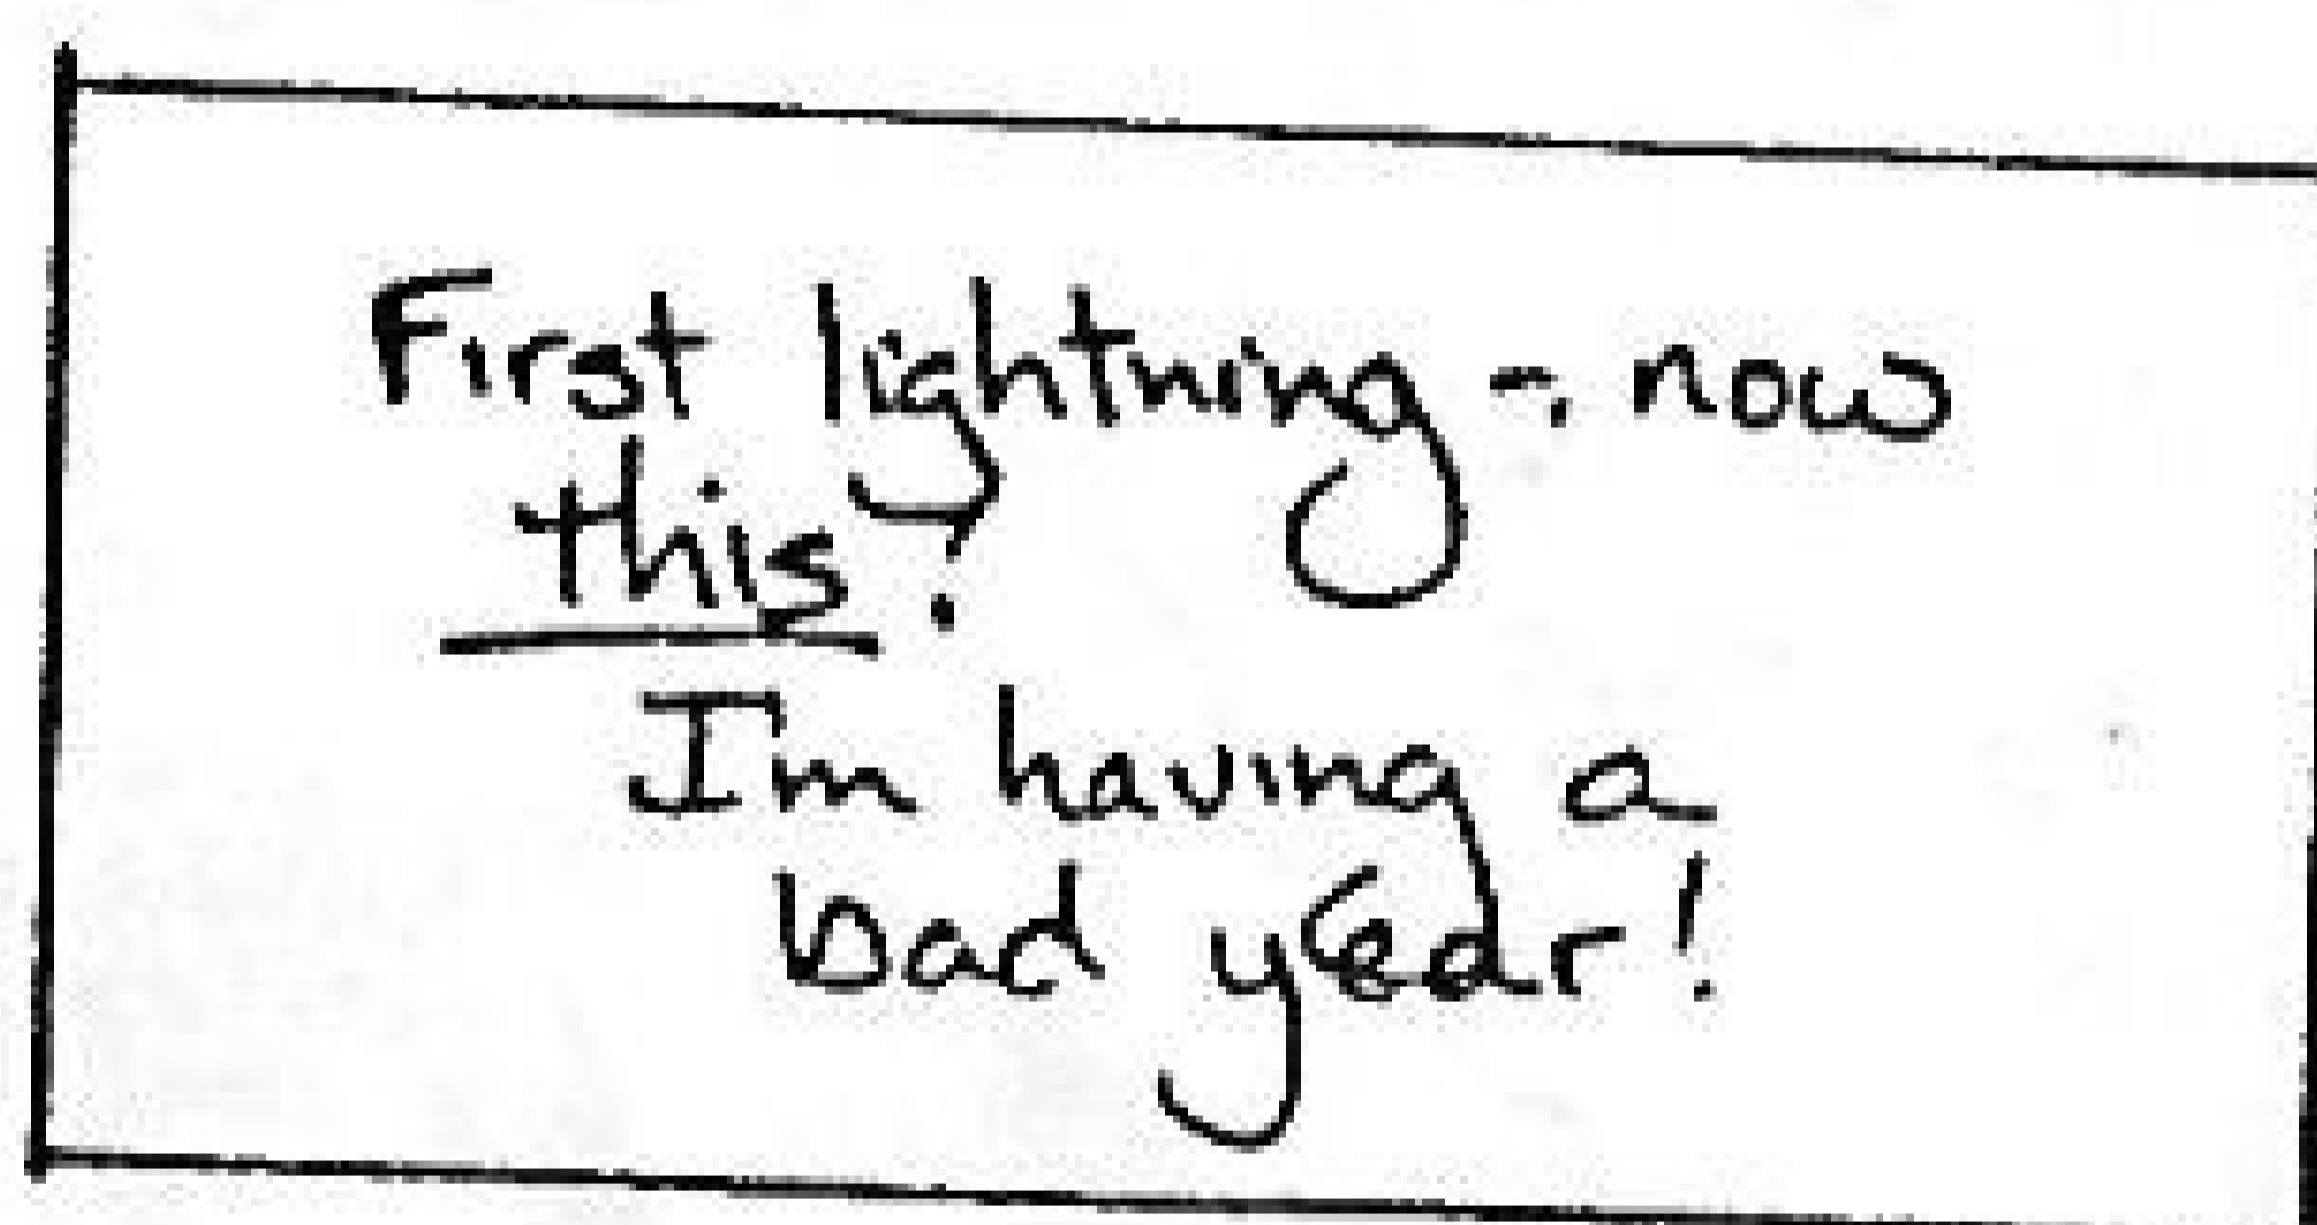 First lightning - now
this!
I'm having a
bad year!